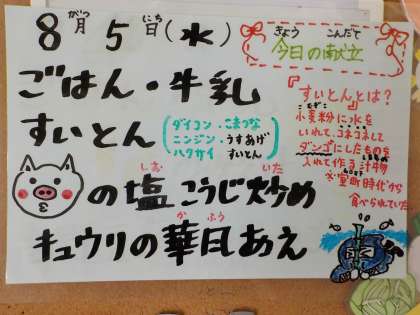 8月5日(水)
がつ にち
きょう こんだて
今日の献立
ごはん・牛乳
すいとん
ダイコン・こまつな
ニンジン・うすあげ
ハクサイ すいとん
の塩こうじ炒め
しお いた
キュウリの華風あえ
か ふう
『すいとんとは?』
小麦粉に水を
こむぎこ
いれて、コネコネして
ダンゴにしたものを
入れて作る汁物
室町時代から
食べられていた